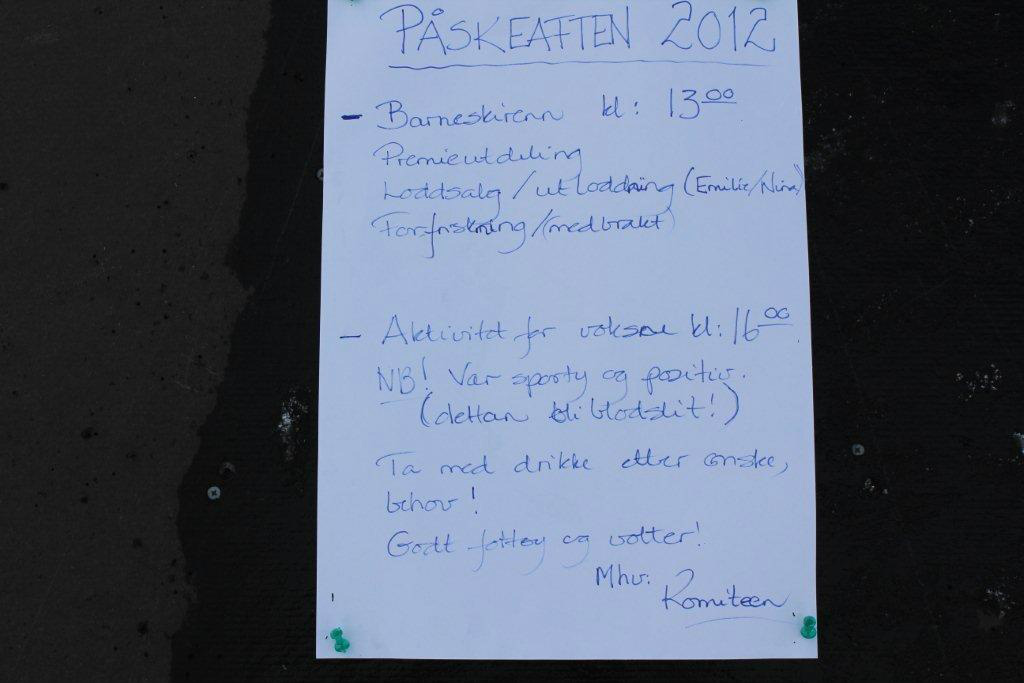 PÅSKEAFTEN 2012
- Barneskirenn kl: 13 00
Premieutdeling
Loddsalg / utloddning (Emilie/Nina)
Forfriskning / (medbrakt)
- Aktivitet for voksne kl: 16 00
NB! Vær sporty og positiv.
(dettan bli blodslit!)
Ta med drikke etter ønske,
behov!
Godt fottøy og votter!
Mhv:
Komiteen